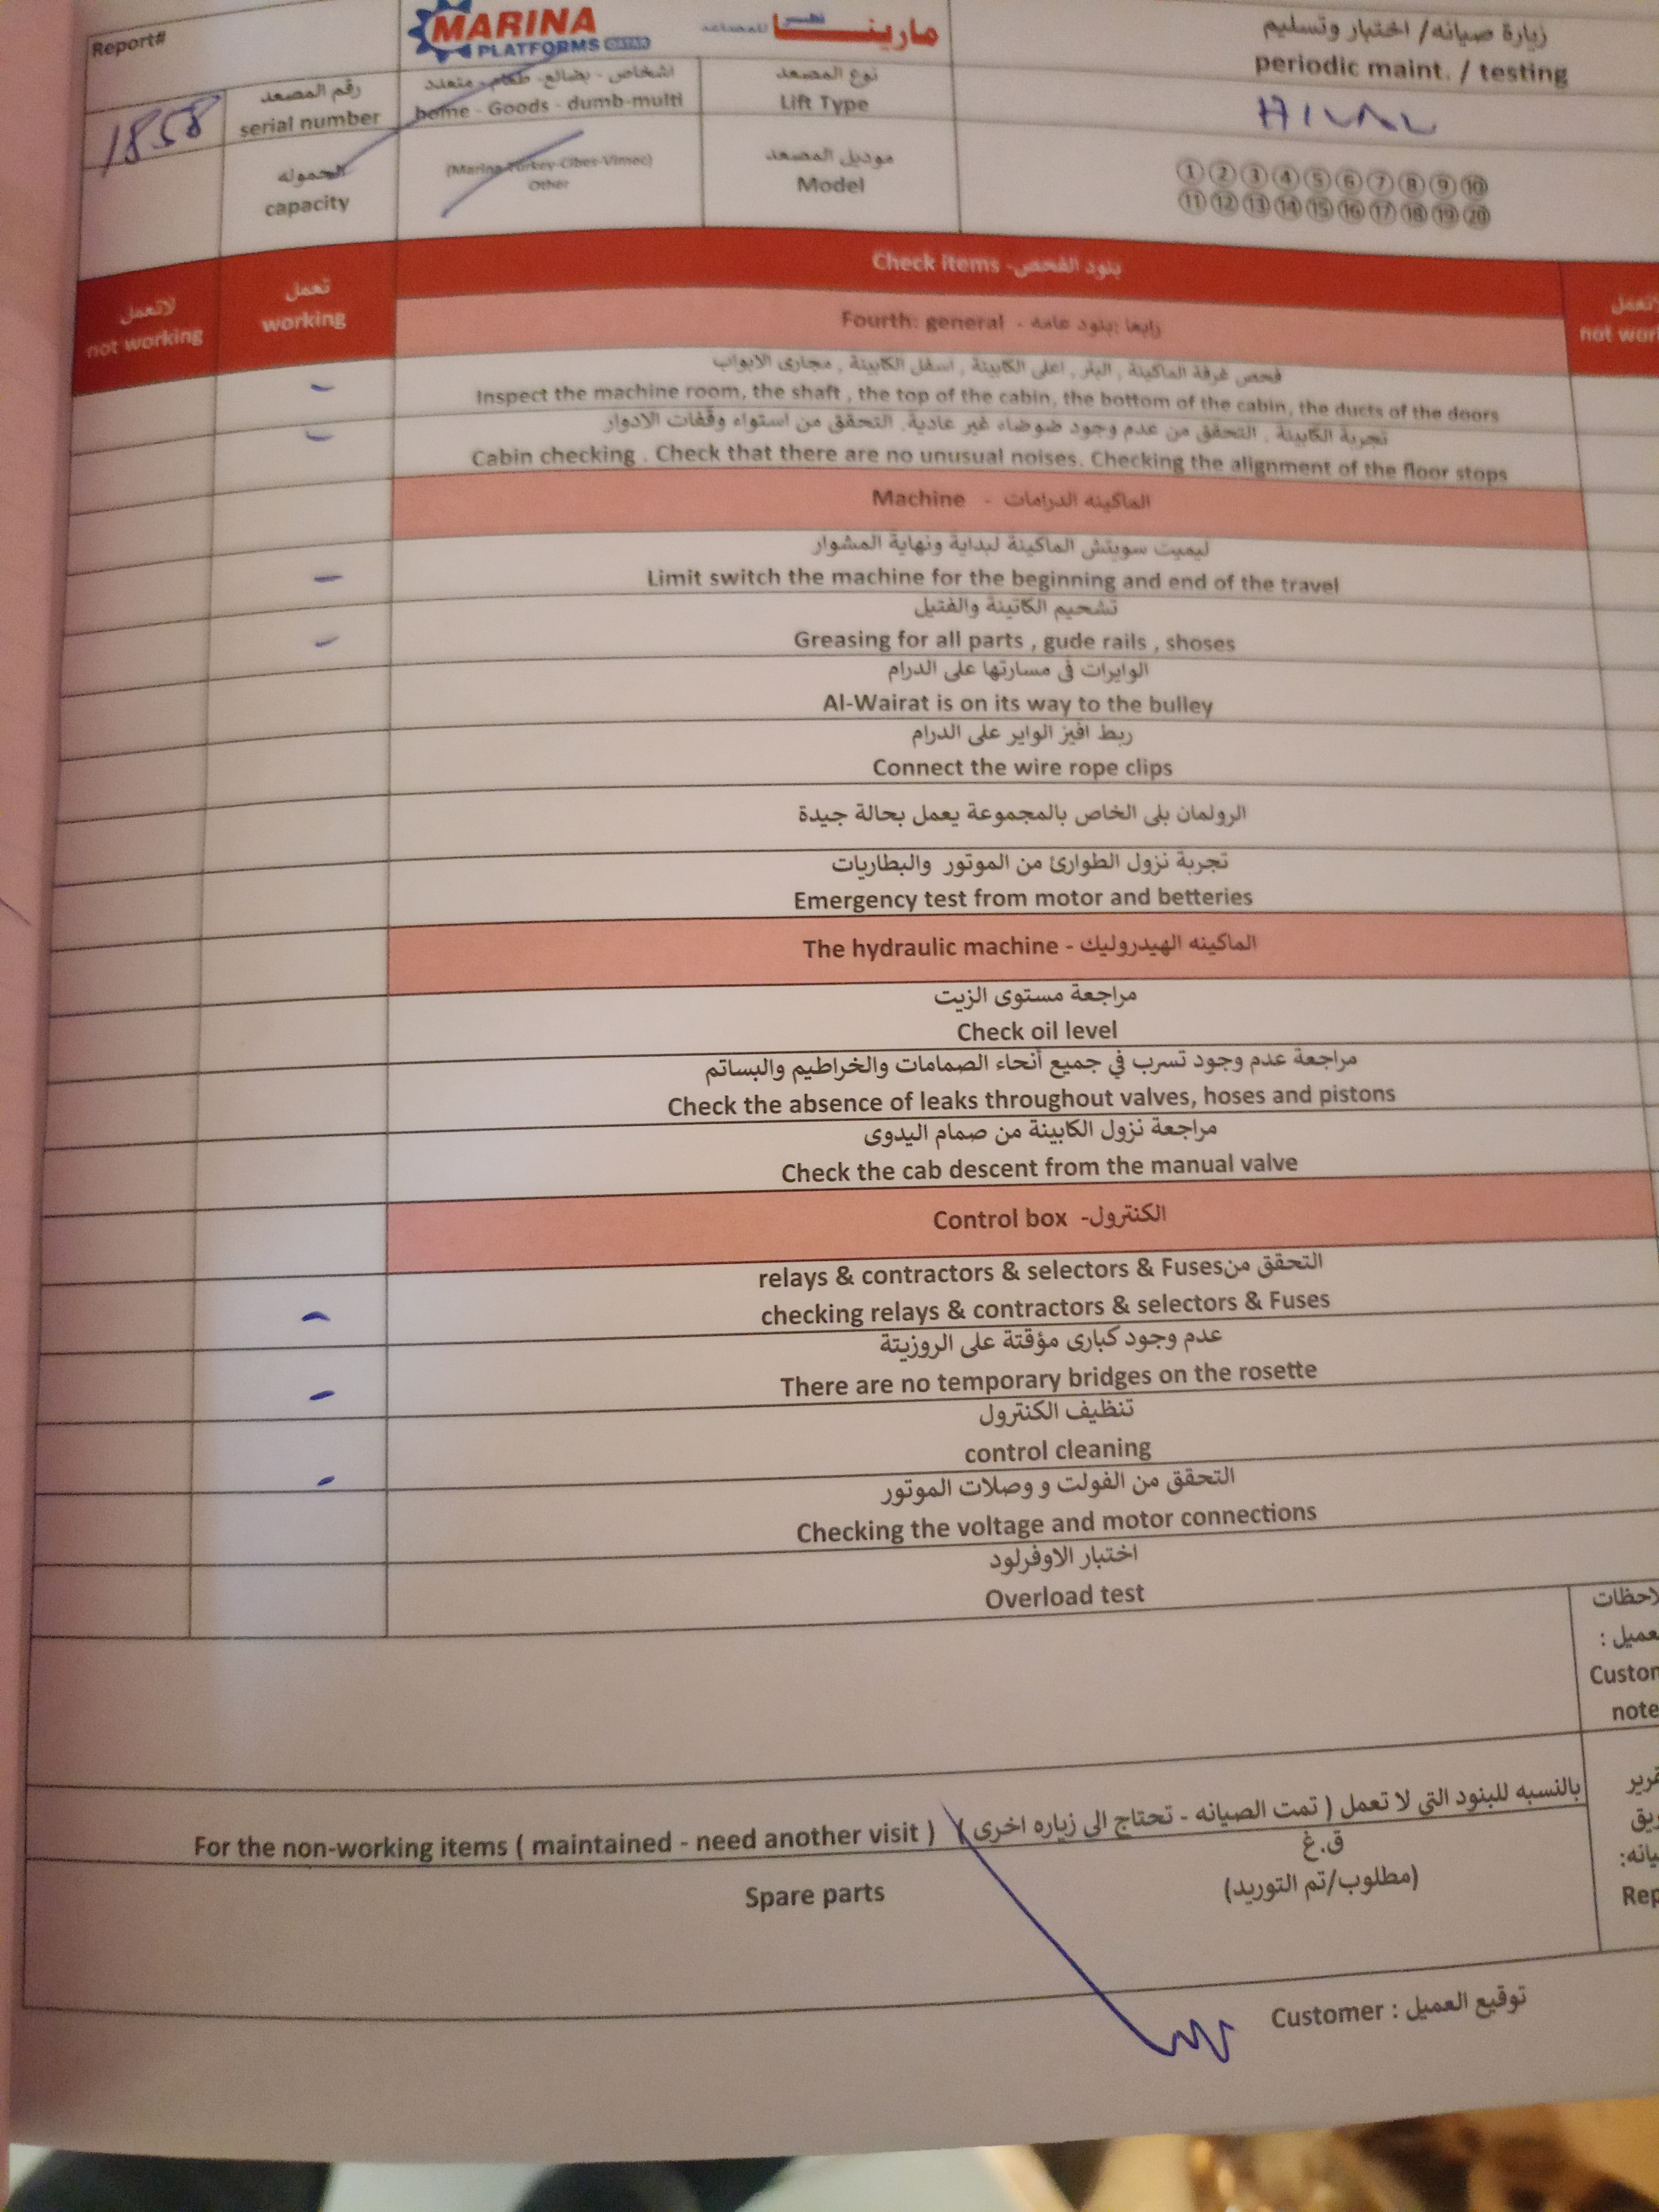 Report#
MARINA
PLATFORMS QATAR
مارينا
زيارة صيانه/ اختبار وتسليم
periodic maint. / testing
1858
رقم المصعد
serial number
اشخاص - بضائع - طعام - متعدد
home - Goods - dumb-multi
نوع المصعد
Lift Type
HILAL
الحموله
capacity
(Marina-Turkey-Cibes-Vimec)
Other
موديل المصعد
Model
① ② ③ ④ ⑤ ⑥ ⑦ ⑧ ⑨ ⑩
⑪ ⑫ ⑬ ⑭ ⑮ ⑯ ⑰ ⑱ ⑲ ⑳
لاتعمل
not working
تعمل
working
Check items -بنود الفحص
not wor
Fourth: general - رابعا :بنود عامه
فحص غرفة الماكينة , البئر , اعلى الكابينة , اسفل الكابينة , مجارى الابواب
Inspect the machine room, the shaft , the top of the cabin, the bottom of the cabin, the ducts of the doors
تجربة الكابينة , التحقق من عدم وجود ضوضاء غير عادية, التحقق من استواء وقفات الادوار
Cabin checking . Check that there are no unusual noises. Checking the alignment of the floor stops
Machine - الماكينه الدرامات
ليميت سويتش الماكينة لبداية ونهاية المشوار
Limit switch the machine for the beginning and end of the travel
تشحيم الكاتينة والفتيل
Greasing for all parts , gude rails , shoses
الوايرات في مسارتها على الدرام
Al-Wairat is on its way to the bulley
ربط افيز الواير على الدرام
Connect the wire rope clips
الرولمان بلى الخاص بالمجموعة يعمل بحالة جيدة
تجربة نزول الطوارئ من الموتور والبطاريات
Emergency test from motor and betteries
The hydraulic machine - الماكينه الهيدروليك
مراجعة مستوى الزيت
Check oil level
مراجعة عدم وجود تسرب في جميع أنحاء الصمامات والخراطيم والبساتم
Check the absence of leaks throughout valves, hoses and pistons
مراجعة نزول الكابينة من صمام اليدوى
Check the cab descent from the manual valve
Control box -الكنترول
relays & contractors & selectors & Fusesالتحقق من
checking relays & contractors & selectors & Fuses
عدم وجود كبارى مؤقتة على الروزيتة
There are no temporary bridges on the rosette
تنظيف الكنترول
control cleaning
التحقق من الفولت و وصلات الموتور
Checking the voltage and motor connections
اختبار الاوفرلود
Overload test
لاحظات
عميل :
Custon
note
For the non-working items ( maintained - need another visit ) بالنسبه للبنود التي لا تعمل ( تمت الصيانه - تحتاج الى زياره اخرى )
ق.غ
Spare parts
(مطلوب/تم التوريد)
رير
ريق
يانه:
Rep
Customer : توقيع العميل